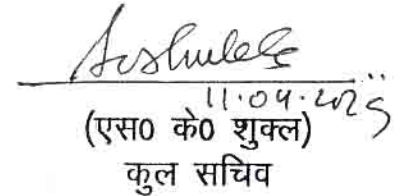 11.04.2025
(एस0 के0 शुक्ल)
कुल सचिव